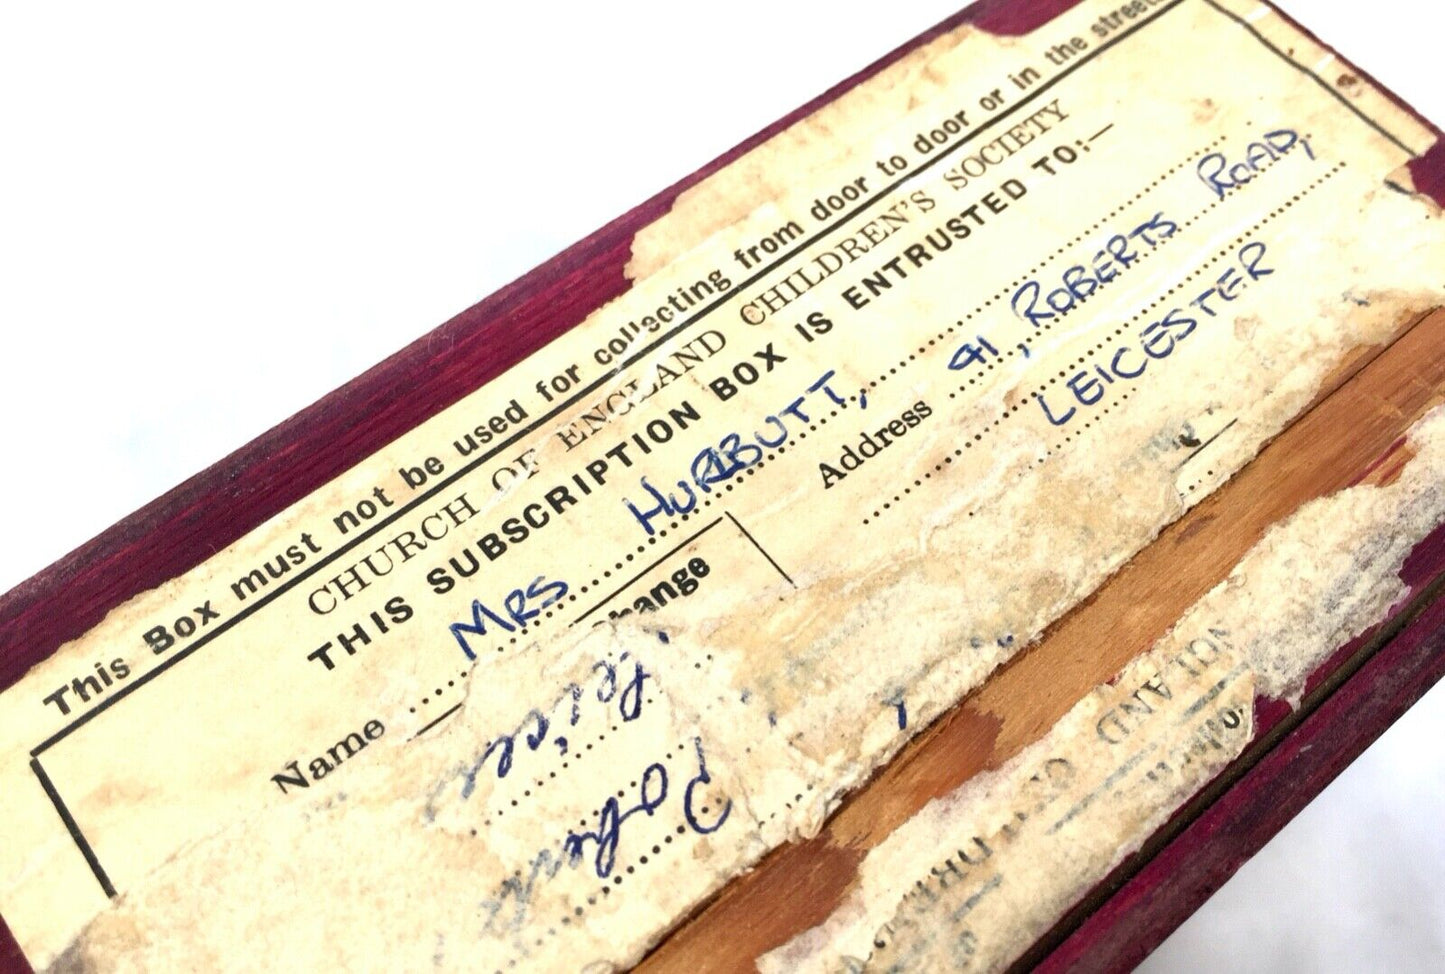 This Box must not be used for collecting from door to door or in the street
CHURCH OF ENGLAND CHILDREN'S SOCIETY
THIS SUBSCRIPTION BOX IS ENTRUSTED TO:—
Name MRS HURBUTT,
Address 41, ROBERTS ROAD,
LEICESTER
hange
Leices
Robert